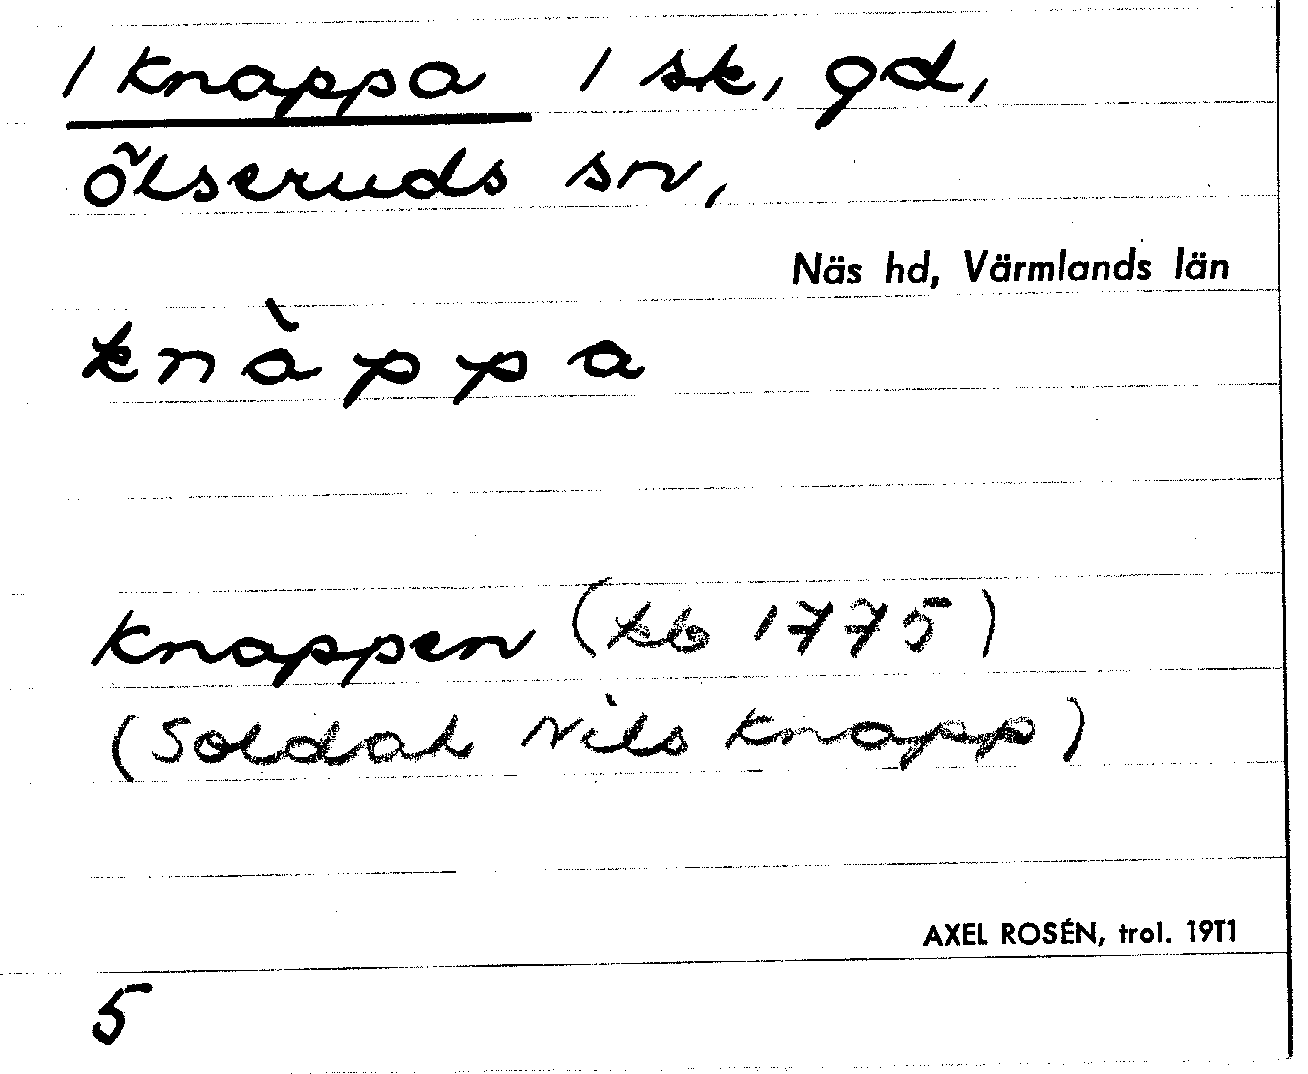 / Knappa / sk, gd,
Ölseruds sn,
Näs hd, Värmlands län
knàppa
Knappen (kb 1775)
(Soldat Nils Knapp)
AXEL ROSÉN, trol. 19T1
5